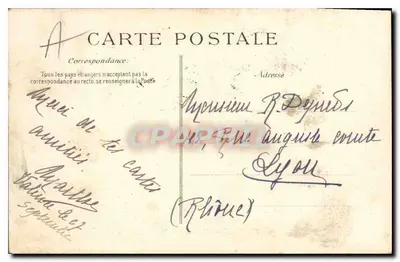 A
CARTE POSTALE
Correspondance:
Tous les pays étrangers n'acceptent pas la
correspondance au recto, se renseigner à la Poste
Adresse
Merci de tes cartes
amitiés.
le 27
Septembre
Monsieur R
Rue auguste comte
Lyon
(Rhône)